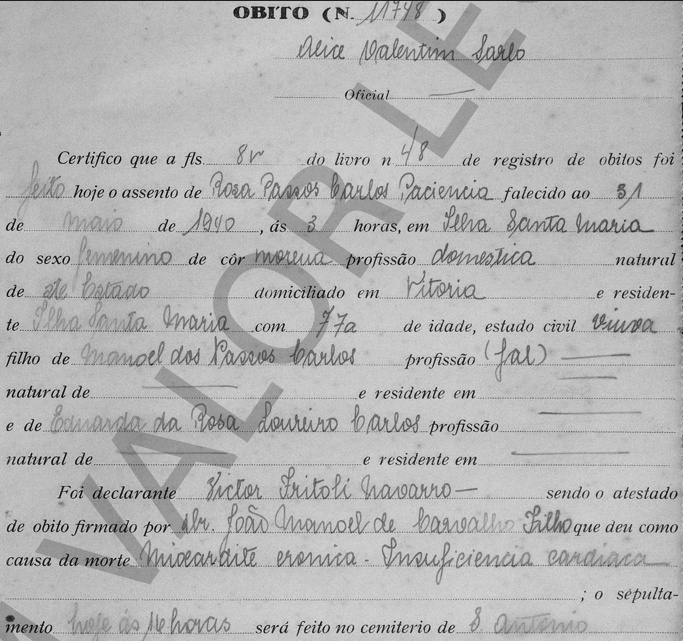 OBITO (N. 11748)
Alice Valentim Sarlo
Oficial
Certifico que a fls. 8v do livro n 48 de registro de obitos foi
feito hoje o assento de Rosa Passos Carlos Paciencia falecido ao 31
de maio de 1940, ás 3 horas, em Ilha Santa Maria
do sexo femenino de côr morena profissão domestica natural
de Estado domiciliado em Vitoria e residen-
te Ilha Santa Maria com 77a de idade, estado civil viuva
filho de Manoel dos Passos Carlos profissão (fal)
natural de e residente em
e de Eduarda da Rosa Loureiro Carlos profissão
natural de e residente em
Foi declarante Victor Navarro sendo o atestado
de obito firmado por dr. João Manoel de Carvalho Filho que deu como
causa da morte Miocardite cronica - Insuficiencia cardiaca
; o sepulta-
mento hoje ás 16 horas será feito no cemiterio de S. Antonio
VALOR LE